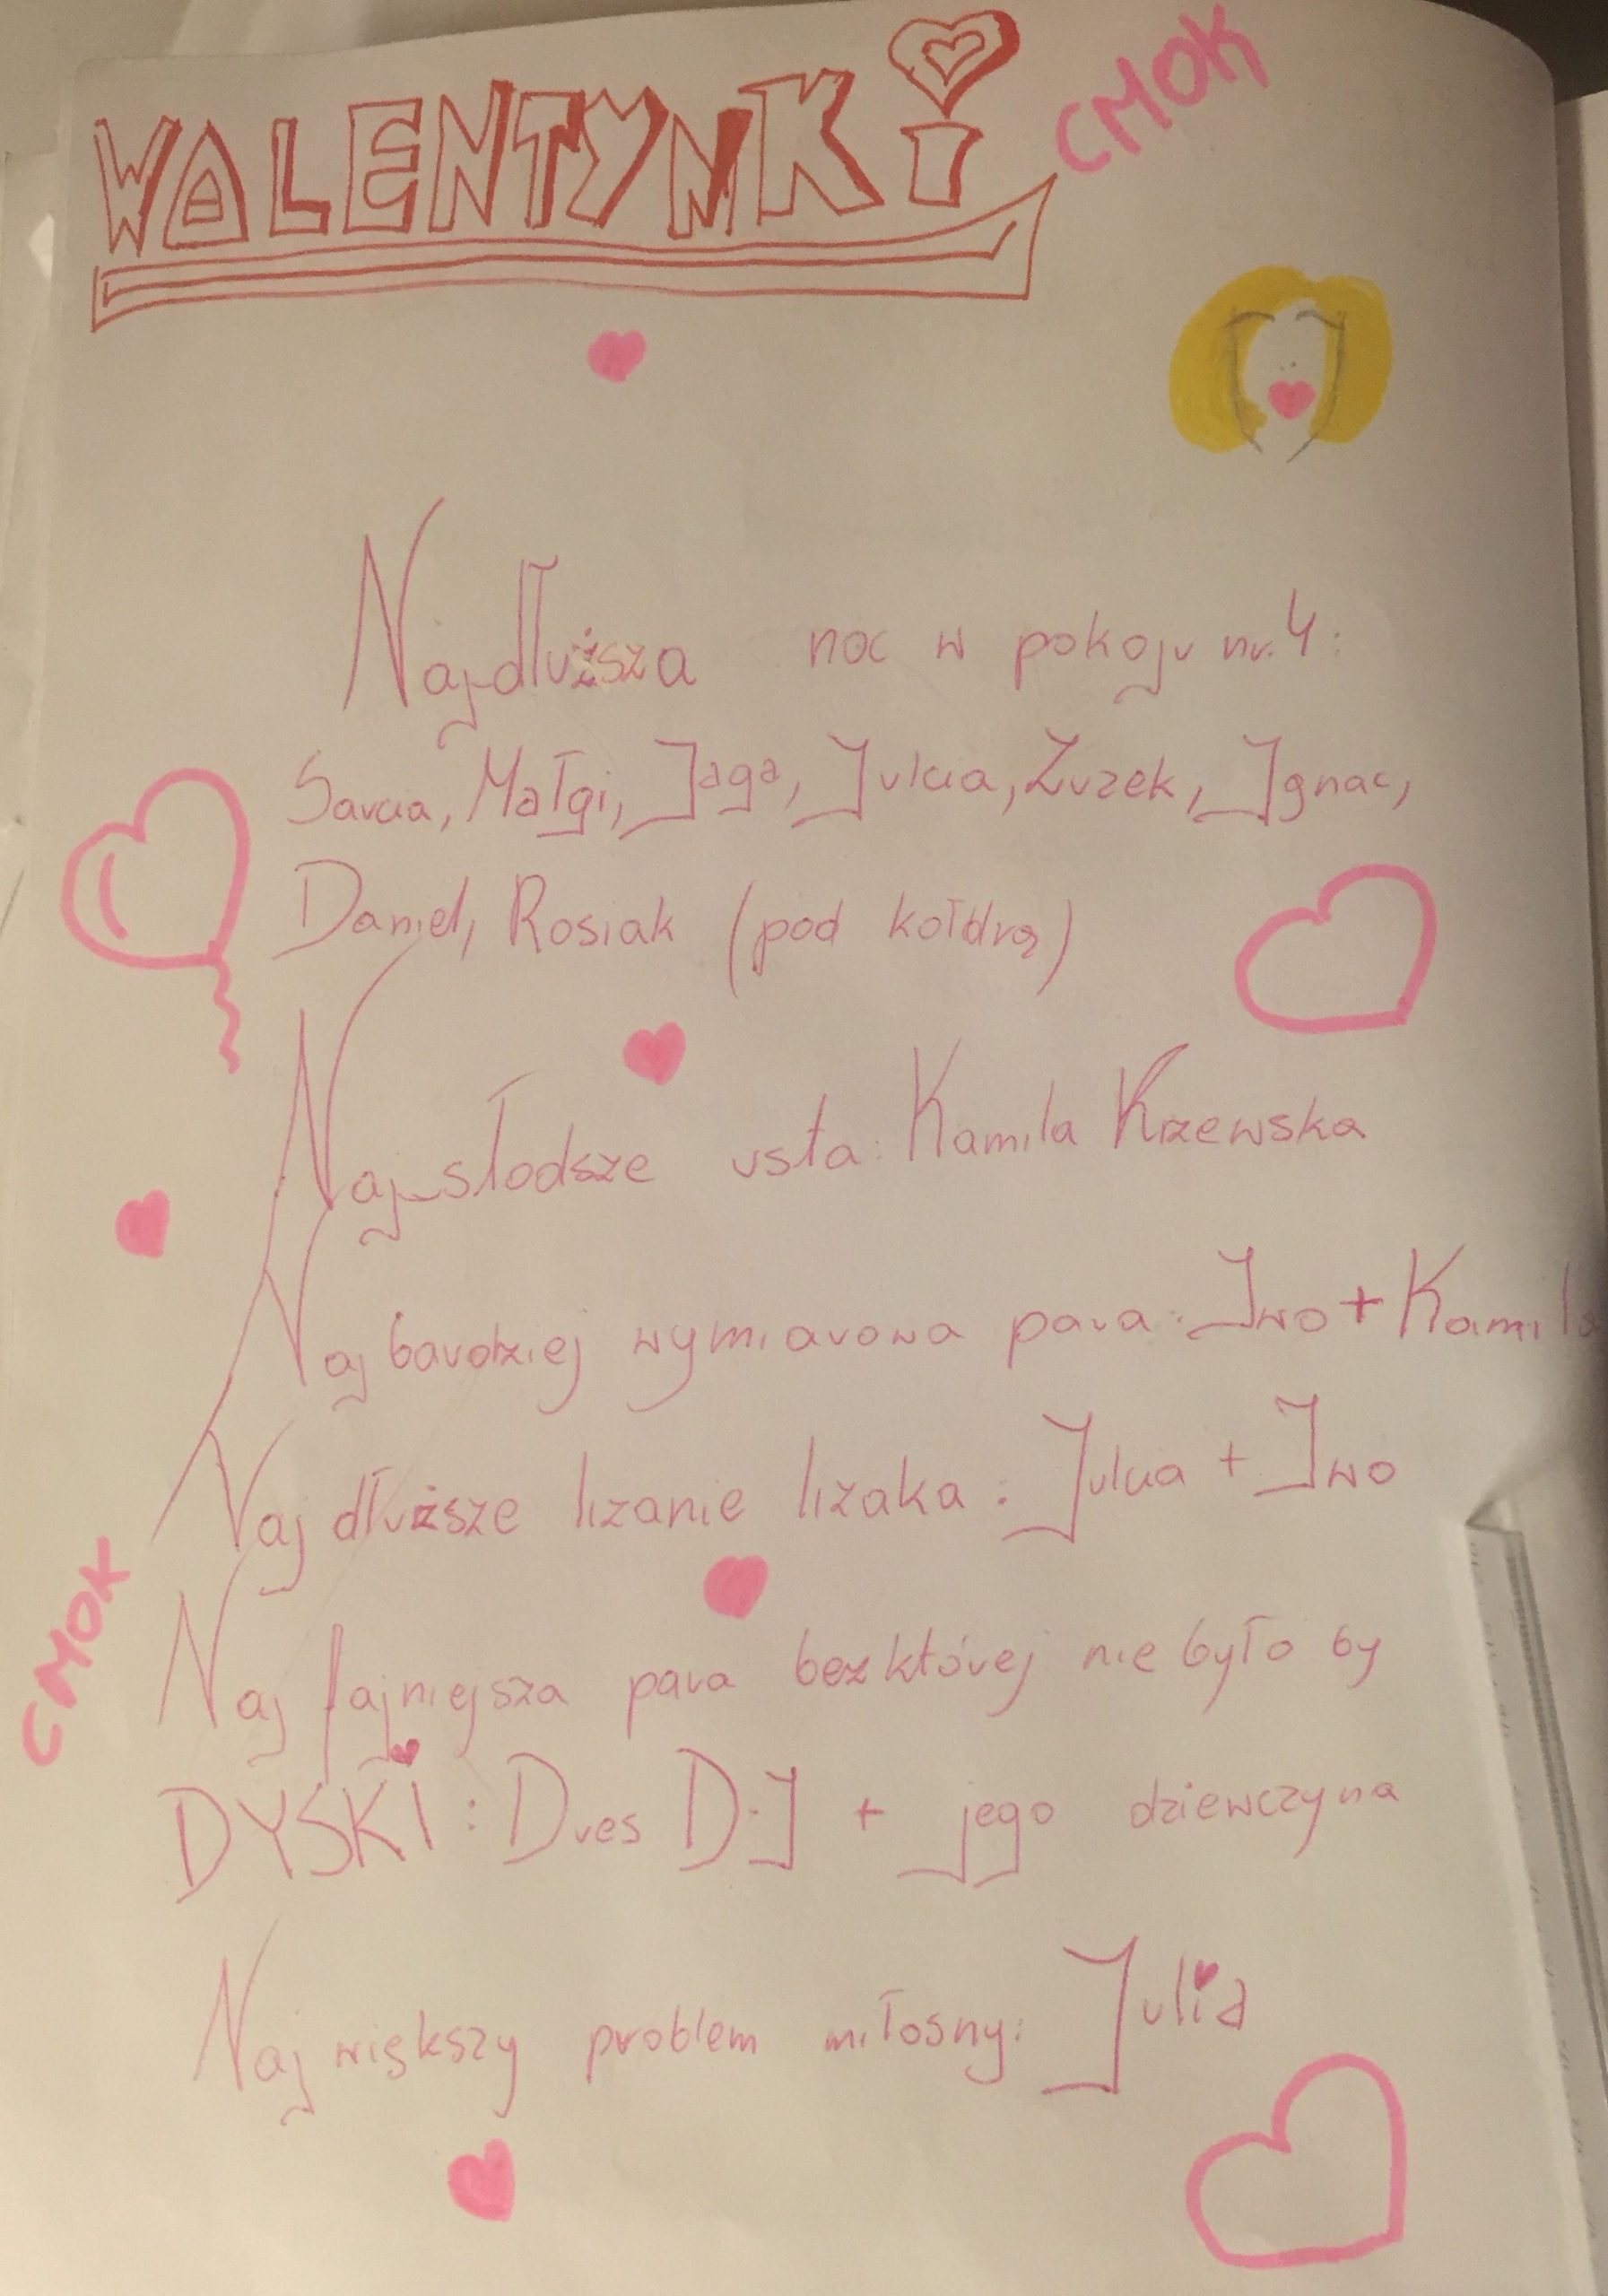 WALENTYNKi
CMOK
Najdłuższa noc w pokoju nr. 4:
Sarcia, Małgi, Jaga, Julcia, Żurek, Ignac,
Daniel, Rosiak (pod kołdrą)
Najsłodsze usta: Kamila Krzewska
Najbardziej wymiarowa para: Iwo + Kamila
Najdłuższe lizanie lizaka: Julcia + Iwo
CMOK
Naj fajniejsza para bez której nie było by
DYSKI: Dres DJ + jego dziewczyna
Największy problem miłosny: Julia